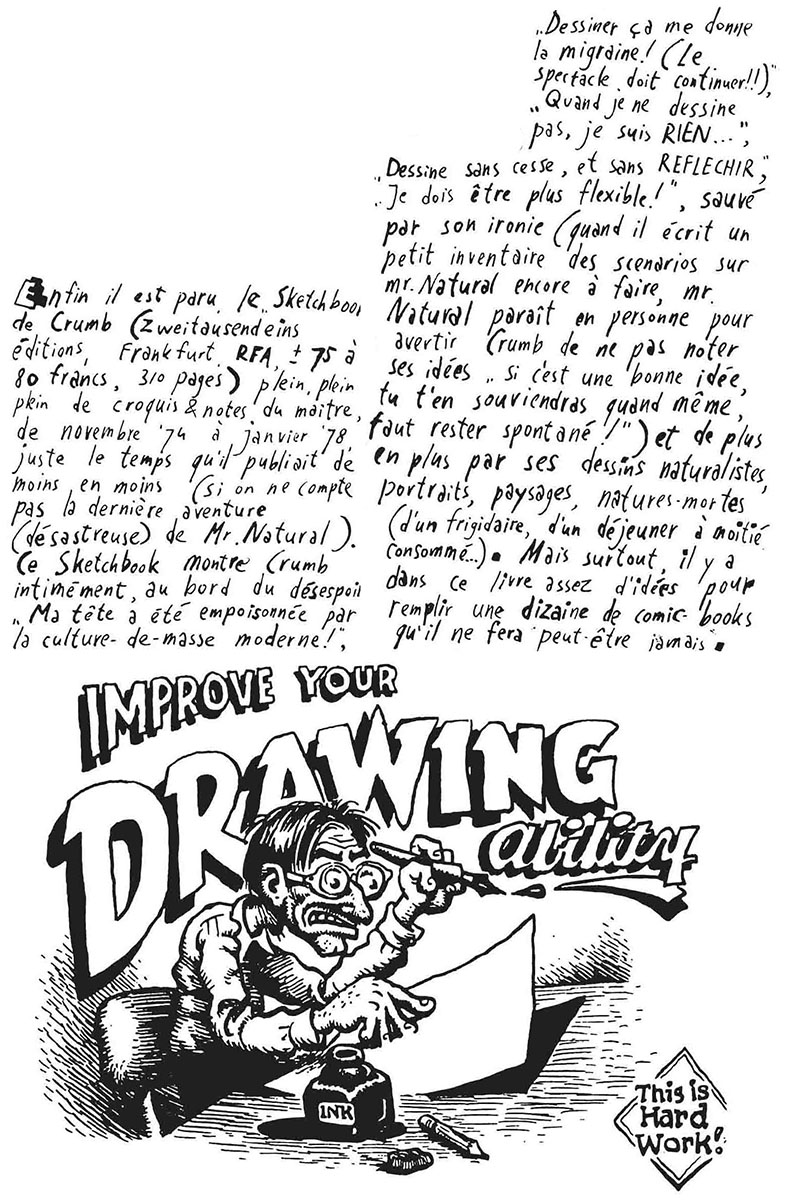 Enfin il est paru, le „Sketchbook
de Crumb (Zweitausendeins
éditions, Frankfurt, RFA, ± 75 à
80 francs, 310 pages) plein, plein
plein de croquis & notes du maitre,
de novembre '74 à janvier '78,
juste le temps qu'il publiait de
moins en moins (si on ne compte
pas la dernière aventure
(désastreuse) de Mr. Natural).
Ce Sketchbook montre Crumb
intimément, au bord du désespoir
„Ma tête a été empoisonnée par
la culture-de-masse moderne!",
„Dessiner ça me donne
la migraine! (Le
spectacle doit continuer!!)",
„Quand je ne dessine
pas, je suis RIEN...",
„Dessine sans cesse, et sans REFLECHIR",
„Je dois être plus flexible!", sauvé
par son ironie (quand il écrit un
petit inventaire des scenarios sur
mr. Natural encore à faire, mr.
Natural paraît en personne pour
avertir Crumb de ne pas noter
ses idées „si c'est une bonne idée,
tu t'en souviendras quand même,
faut rester spontané!") et de plus
en plus par ses dessins naturalistes,
portraits, paysages, natures-mortes
(d'un frigidaire, d'un déjeuner à moitié
consommé...). Mais surtout, il y a
dans ce livre assez d'idées pour
remplir une dizaine de comic-books
qu'il ne fera peut-être jamais.
IMPROVE YOUR
DRAWING
ability
INK
This is
Hard
Work!